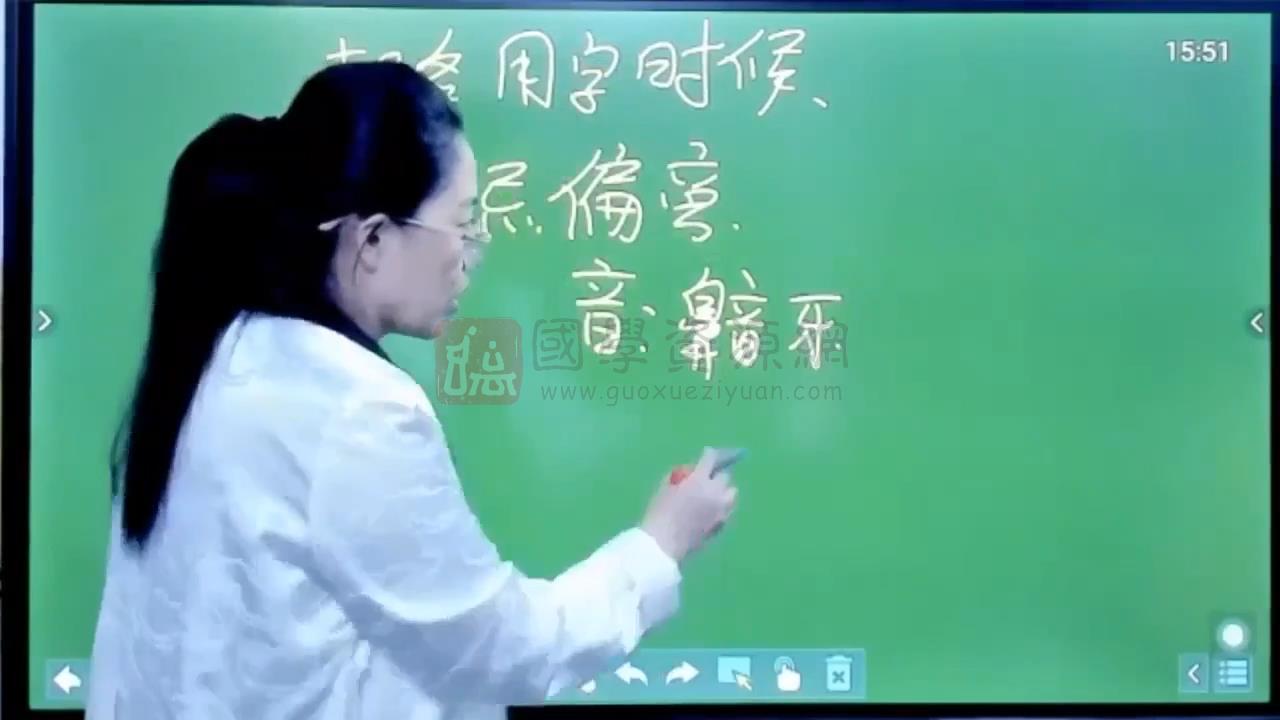 用字时候、
15:51
忌偏旁.
音:
國學資源網
www.guoxueziyuan.com